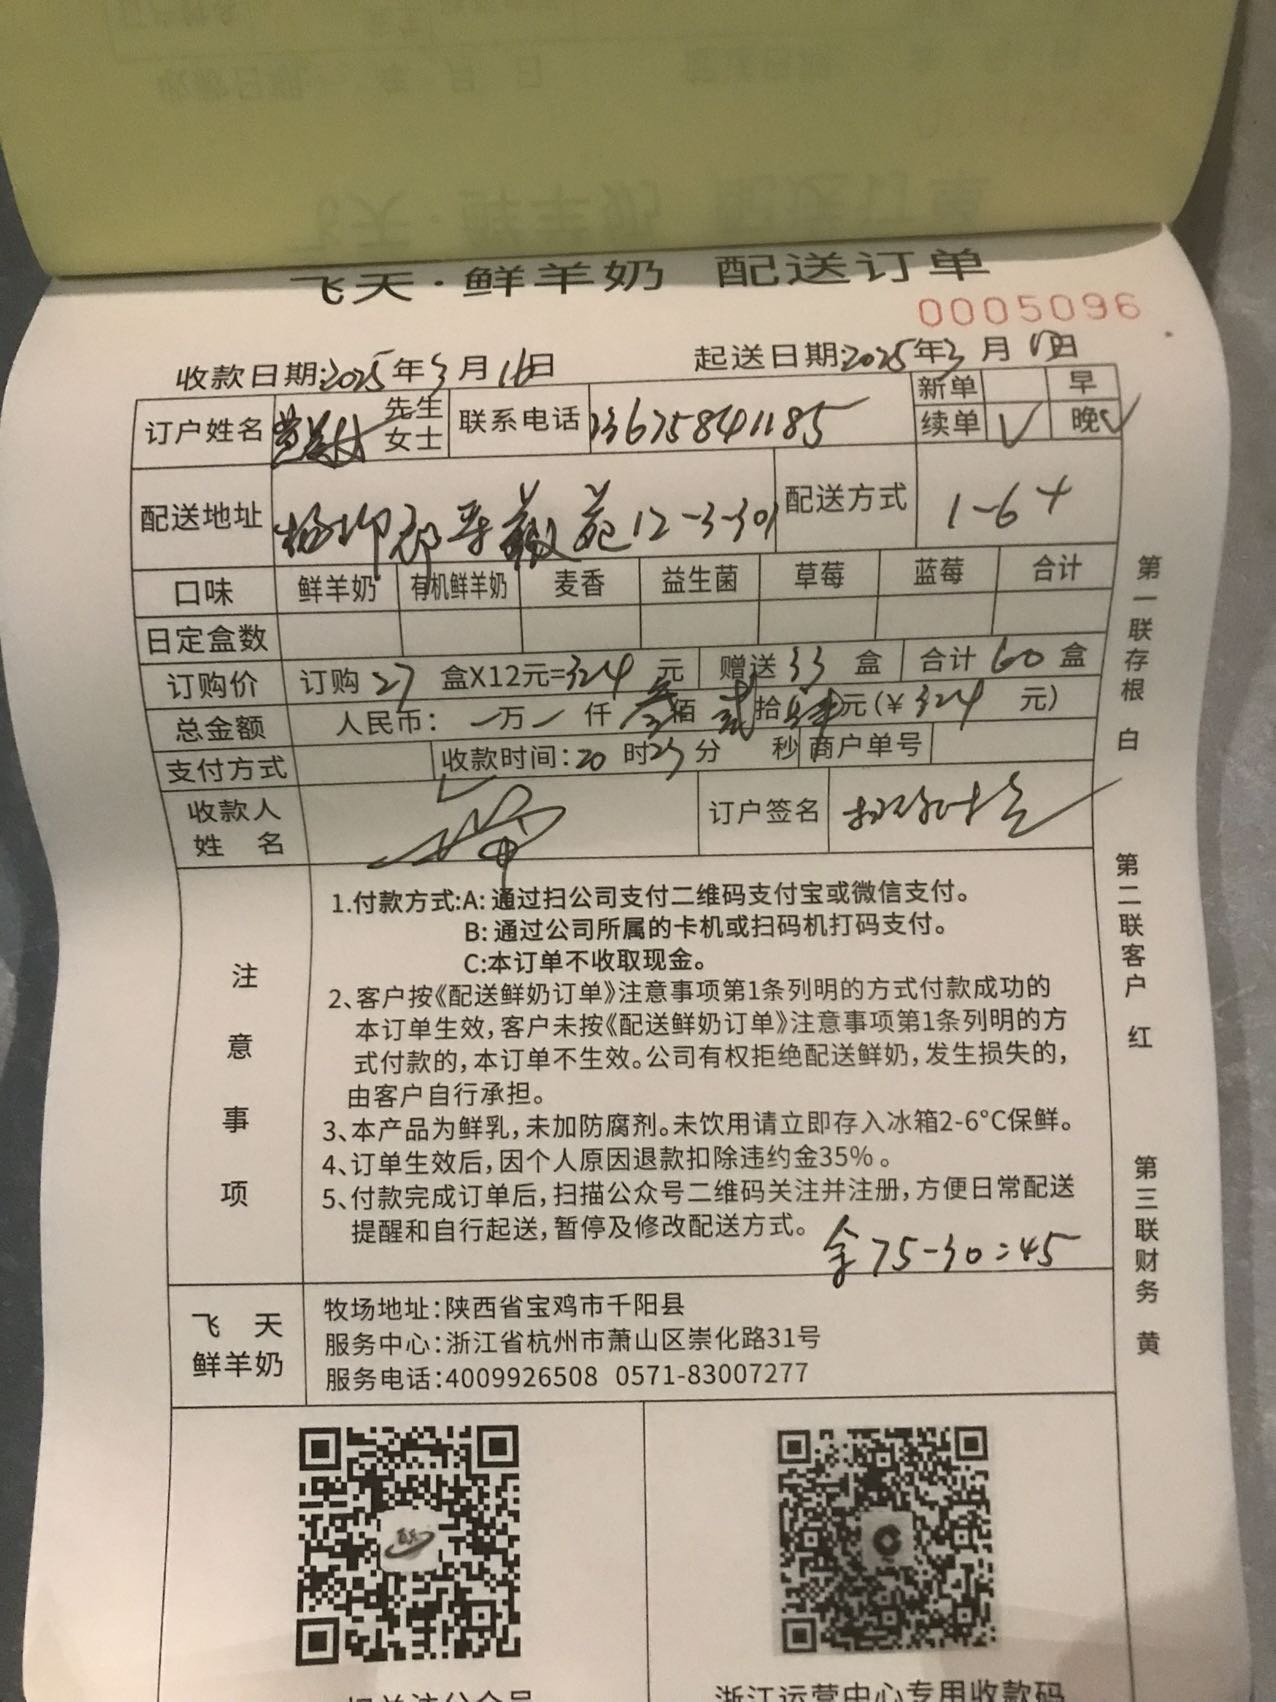 飞天·鲜羊奶 配送订单
0005096
收款日期:2025年3月16日 起送日期:2025年3月 日
订户姓名 先生 女士 联系电话 13675841185 新单 早
续单 √ 晚√
配送地址 杨柳郡 蔷薇苑12-3-301 配送方式 1-6+
口味 鲜羊奶 有机鲜羊奶 麦香 益生菌 草莓 蓝莓 合计
日定盒数
订购价 订购27盒X12元=324元 赠送33盒 合计60盒
总金额 人民币: 一万一仟叁佰贰拾肆元(¥324元)
支付方式 收款时间:20时23分 秒 商户单号
收款人
姓 名
订户签名
注意事项
1.付款方式:A: 通过扫公司支付二维码支付宝或微信支付。
B: 通过公司所属的卡机或扫码机打码支付。
C:本订单不收取现金。
2、客户按《配送鲜奶订单》注意事项第1条列明的方式付款成功的
本订单生效, 客户未按《配送鲜奶订单》注意事项第1条列明的方
式付款的, 本订单不生效。公司有权拒绝配送鲜奶, 发生损失的,
由客户自行承担。
3、本产品为鲜乳, 未加防腐剂。未饮用请立即存入冰箱2-6°C保鲜。
4、订单生效后, 因个人原因退款扣除违约金35%。
5、付款完成订单后, 扫描公众号二维码关注并注册, 方便日常配送
提醒和自行起送, 暂停及修改配送方式。
余75-30=45
飞 天
鲜羊奶
牧场地址:陕西省宝鸡市千阳县
服务中心:浙江省杭州市萧山区崇化路31号
服务电话:4009926508 0571-83007277
第一联存根 白
第二联客户 红
第三联财务 黄
浙江运营中心专用收款码